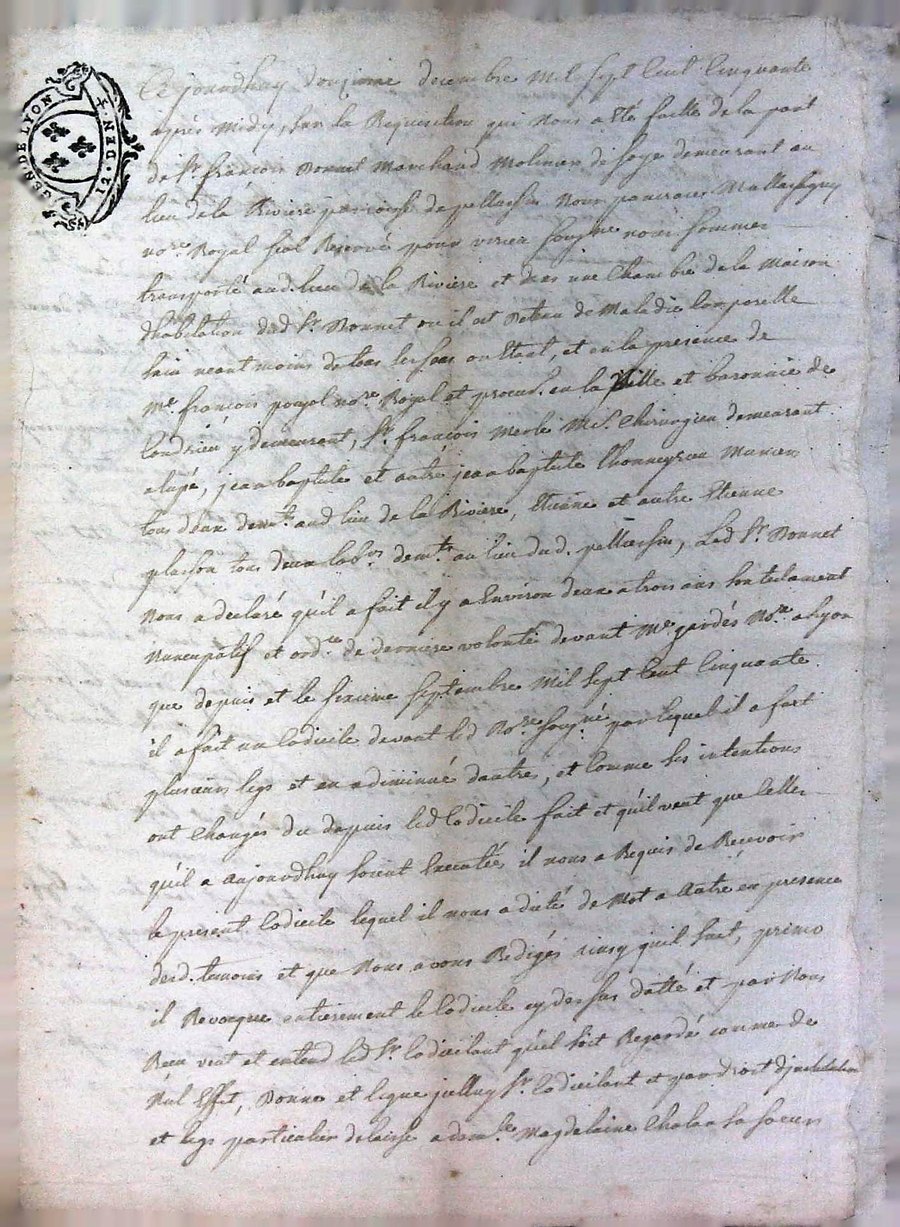 GEN. DE LYON
Ce jourdhuy douzieme decembre Mil sept Cent Cinquante
apres Midy, sur la Requisition qui nous a Eté faitte de la part
de Sr françois Bonnet Marchand Molinier de soye demeurant au
lieu de la Riviere parroisse de pellussin Nous
nore Royal Reservé pour verien sougne nous sommes
transporté aud. lieu de la Riviere et dans une Chambre de la Maison
dhabitation dud Sr Bonnet ou il est Detenu de Maladie Corporelle
sain neantmoins de tous ses sens on Etant, et en la presence de
Me françois poujol nore Royal et procur. en la ville et baronnie de
Condrieu y demeurant, Sr françois Merle Me Chirurgien demeurant
alupé, jean baptiste et autre jean baptiste Thonneyrieu
tous deux demts. aud lieu de la Riviere, Etienne et autre Etienne
plasson tous deux labrs demts au lieu dud. pellussin, Led Sr Bonnet
Nous a declaré qu'il a fait il y a Environ deux a trois ans son testament
Nuncupatif et ordre de derniere volonté devant Me gardés Nore a Lyon
que depuis et le sixieme septembre Mil sept Cent Cinquante
il a fait un Codicile devant led Nore sougné par lequel il a fait
plusieurs legs et en a diminué dautres, et Comme ses intentions
ont Changés du depuis led Codicile fait et qu'il veut que Celles
qu'il a Aujourdhuy soient Executées il nous a Requis de Recevoir
le present Codicile lequel il nous a dicté de Mot a Autre en presence
desd. temoins et que Nous avons Redigés ainsy qu'il suit, primo
il Revoque entierement le Codicile cy dessus datté et par Nous
Receu veut et entend led Sr Codicilant qu'il soit Regardé comme de
Nul Effet, Donne et legue jcelluy Sr Codicilant et par droit d'jnstitution
et legs particulier delaisse a demlle Magdelaine Cholat sa soeur